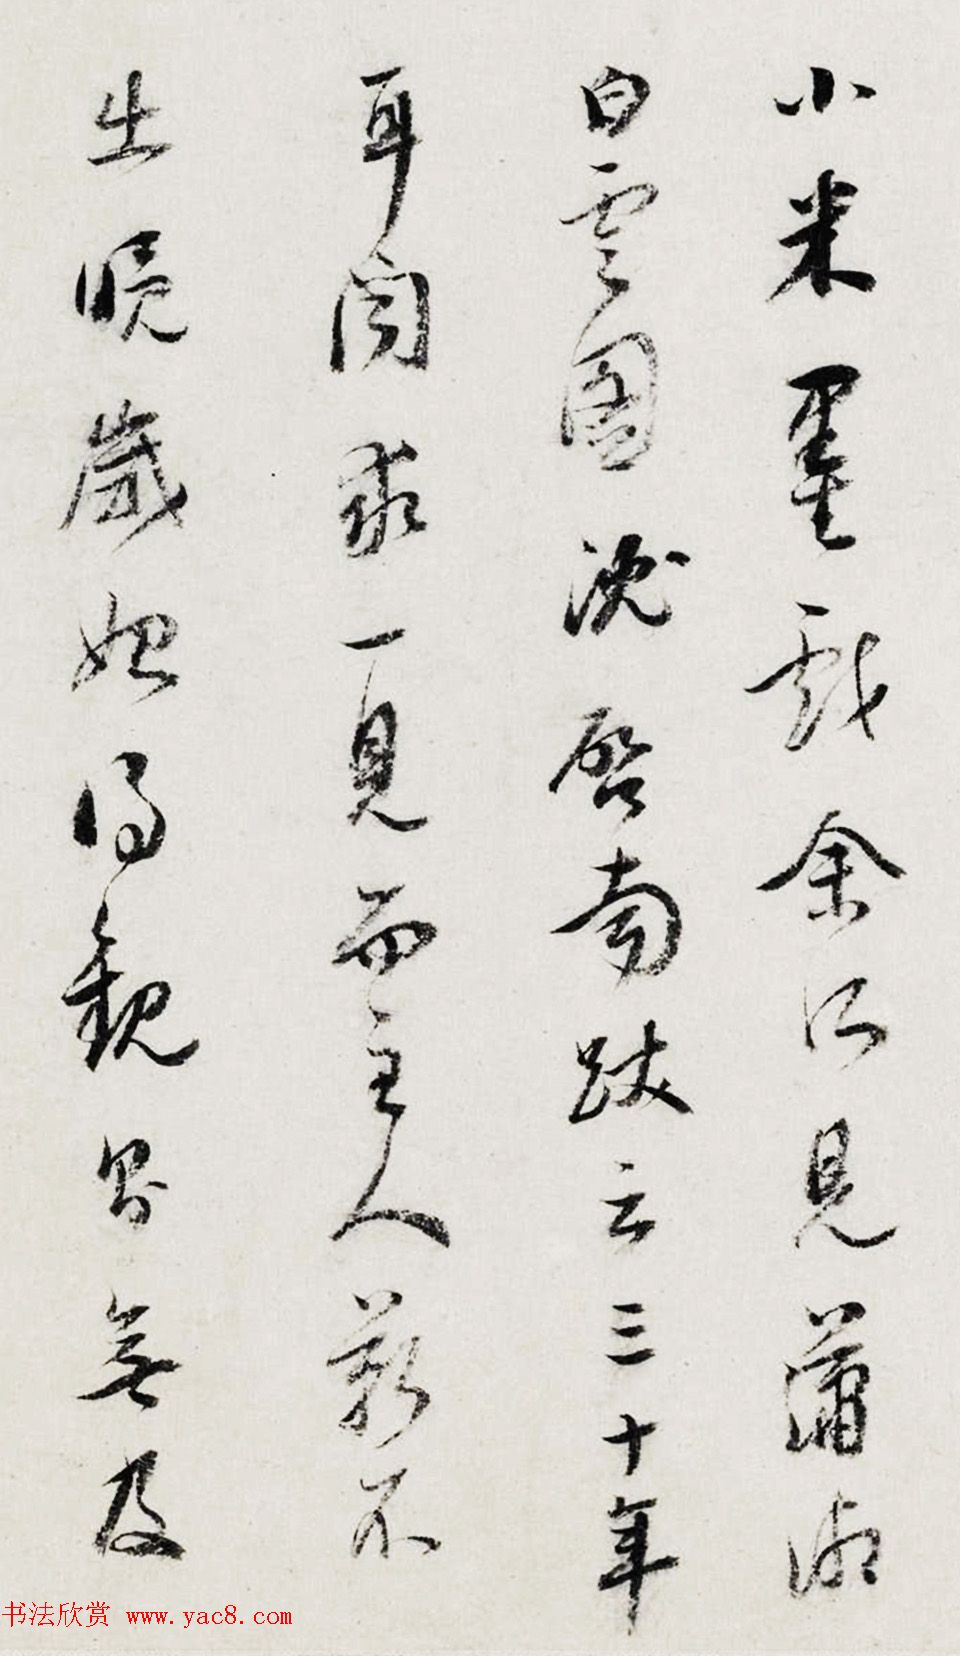 小米墨戲余所見瀟湘
白雲圖沈啓南跋云三十年
耳聞求一見而主人靳不
出晚歲始得觀如無及
书法欣赏 www.yac8.com